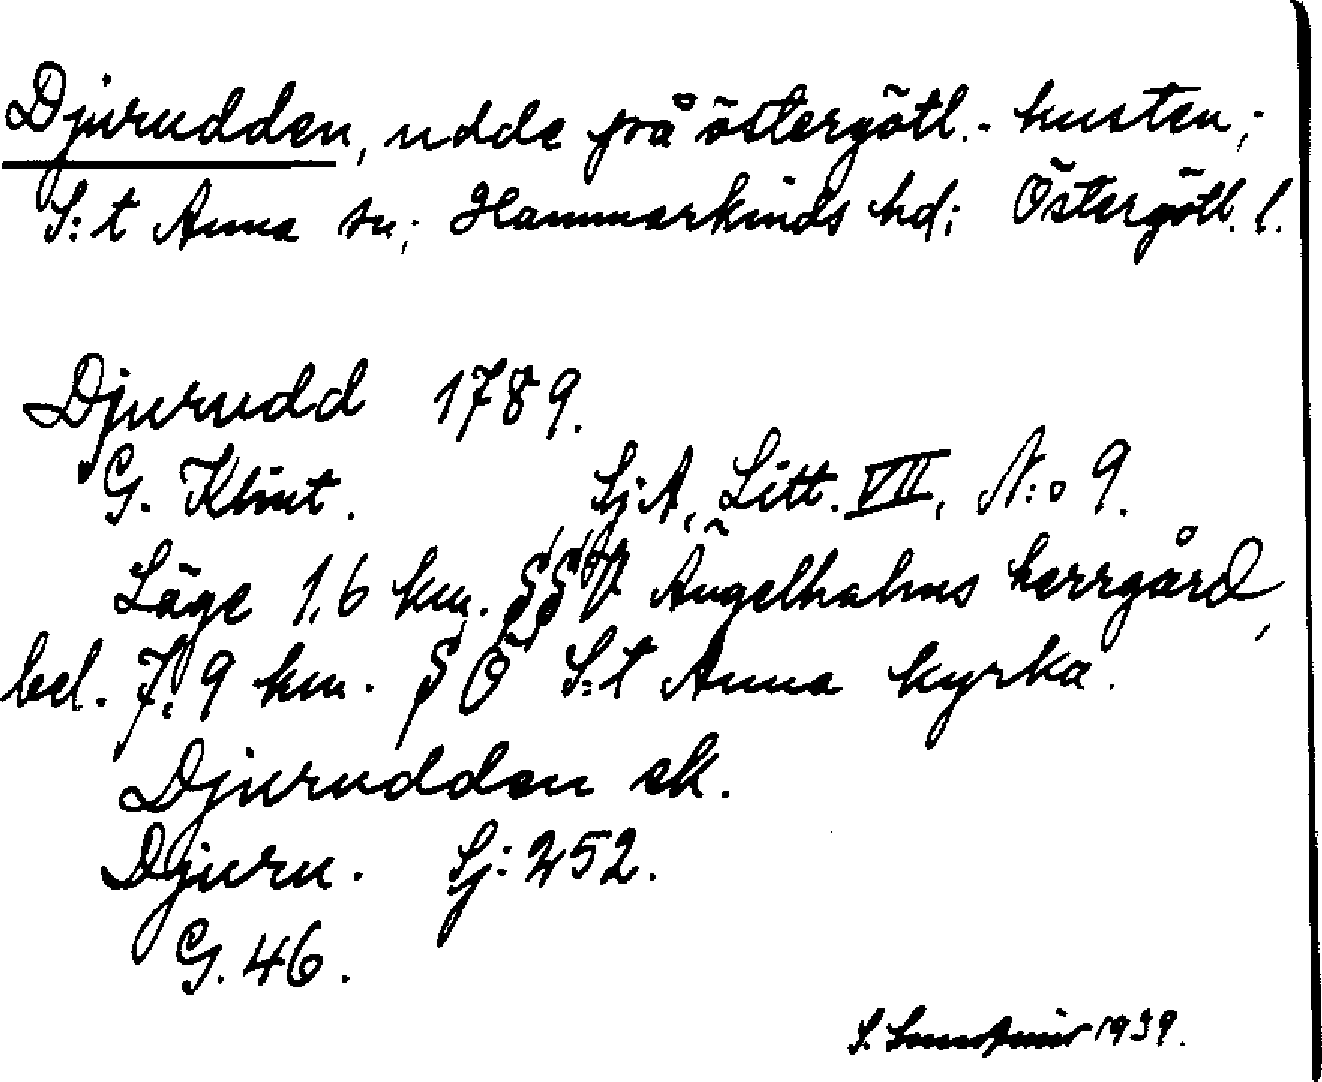 Djurudden, udde på östergötl.- kusten;
S:t Anna sn; Hammarkinds hd; Östergötl. l.
Djurudd 1789.
G. Klint. Sj.A, Litt. VII, N:o 9.
Läge 1,6 km. SSV Ängelholms herrgård,
bel. 7,9 km. SÖ S:t Anna kyrka.
Djurudden ek.
Djuru. Sj: 252.
G. 46.
S. 1939.